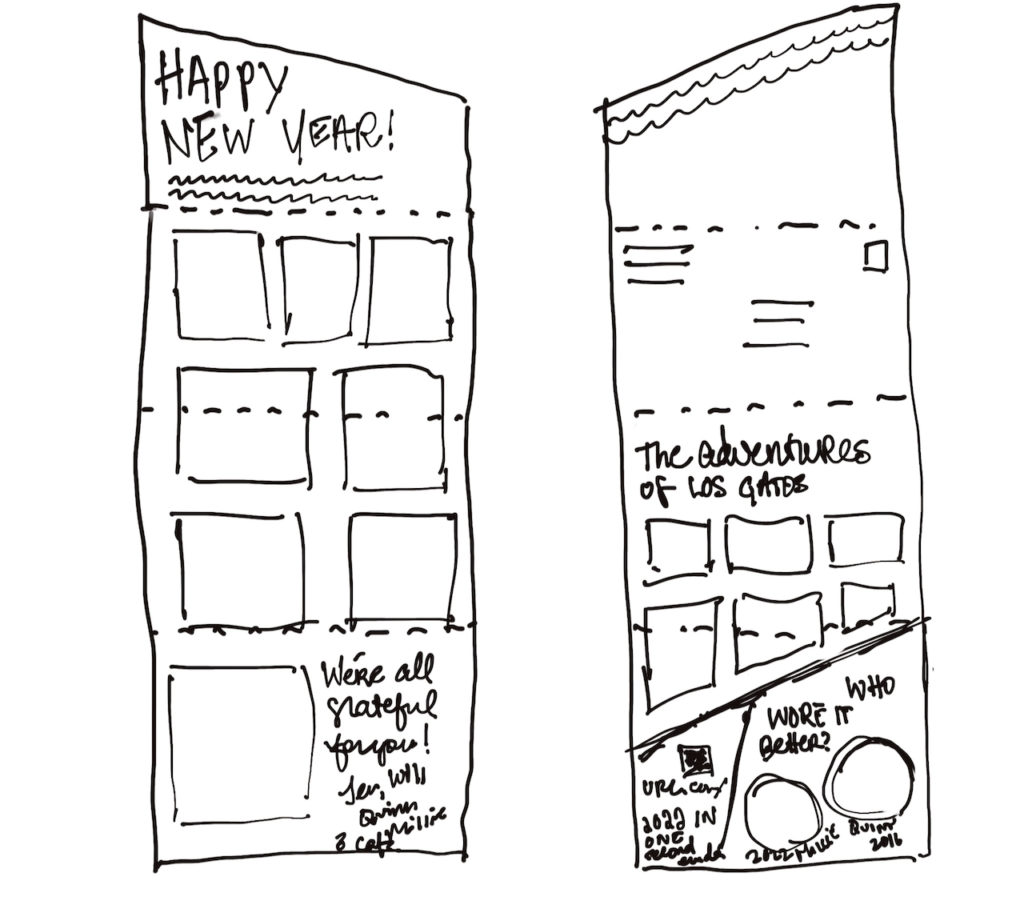 HAPPY
NEW YEAR!
We're all
grateful
for you!
Jen, Will
Quinn
Millie
& Cats
The adventures
of LOS GATOS
WHO
WORE IT
Better?
2022 IN
ONE
second
2022 Millie
Quinn
2016